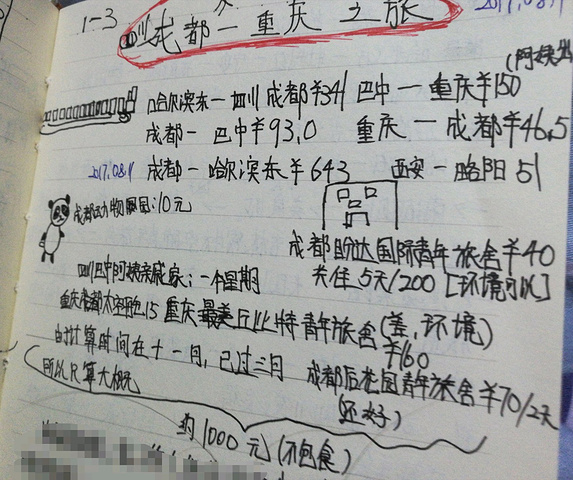 1-3
四川 成都 — 重庆 之旅
2017.08.11
哈尔滨东 — 四川 成都 ¥341 巴中 — 重庆¥150
成都 — 巴中¥93.0 重庆 — 成都¥46.5
2017.08.11 成都 — 哈尔滨东 ¥643 西安 — 略阳 51
成都动物园:10元
成都 国际青年旅舍¥40
共住5天/200 [环境可以]
四川巴中阿姨亲戚家:一个星期
重庆 太空舱15 重庆最美丘比特青年旅舍(差,环境)
¥160
由于计算时间在十一月,已过三月
所以只算大概
成都后花园青年旅舍¥70/2天
(还好)
约1000元(不包食)